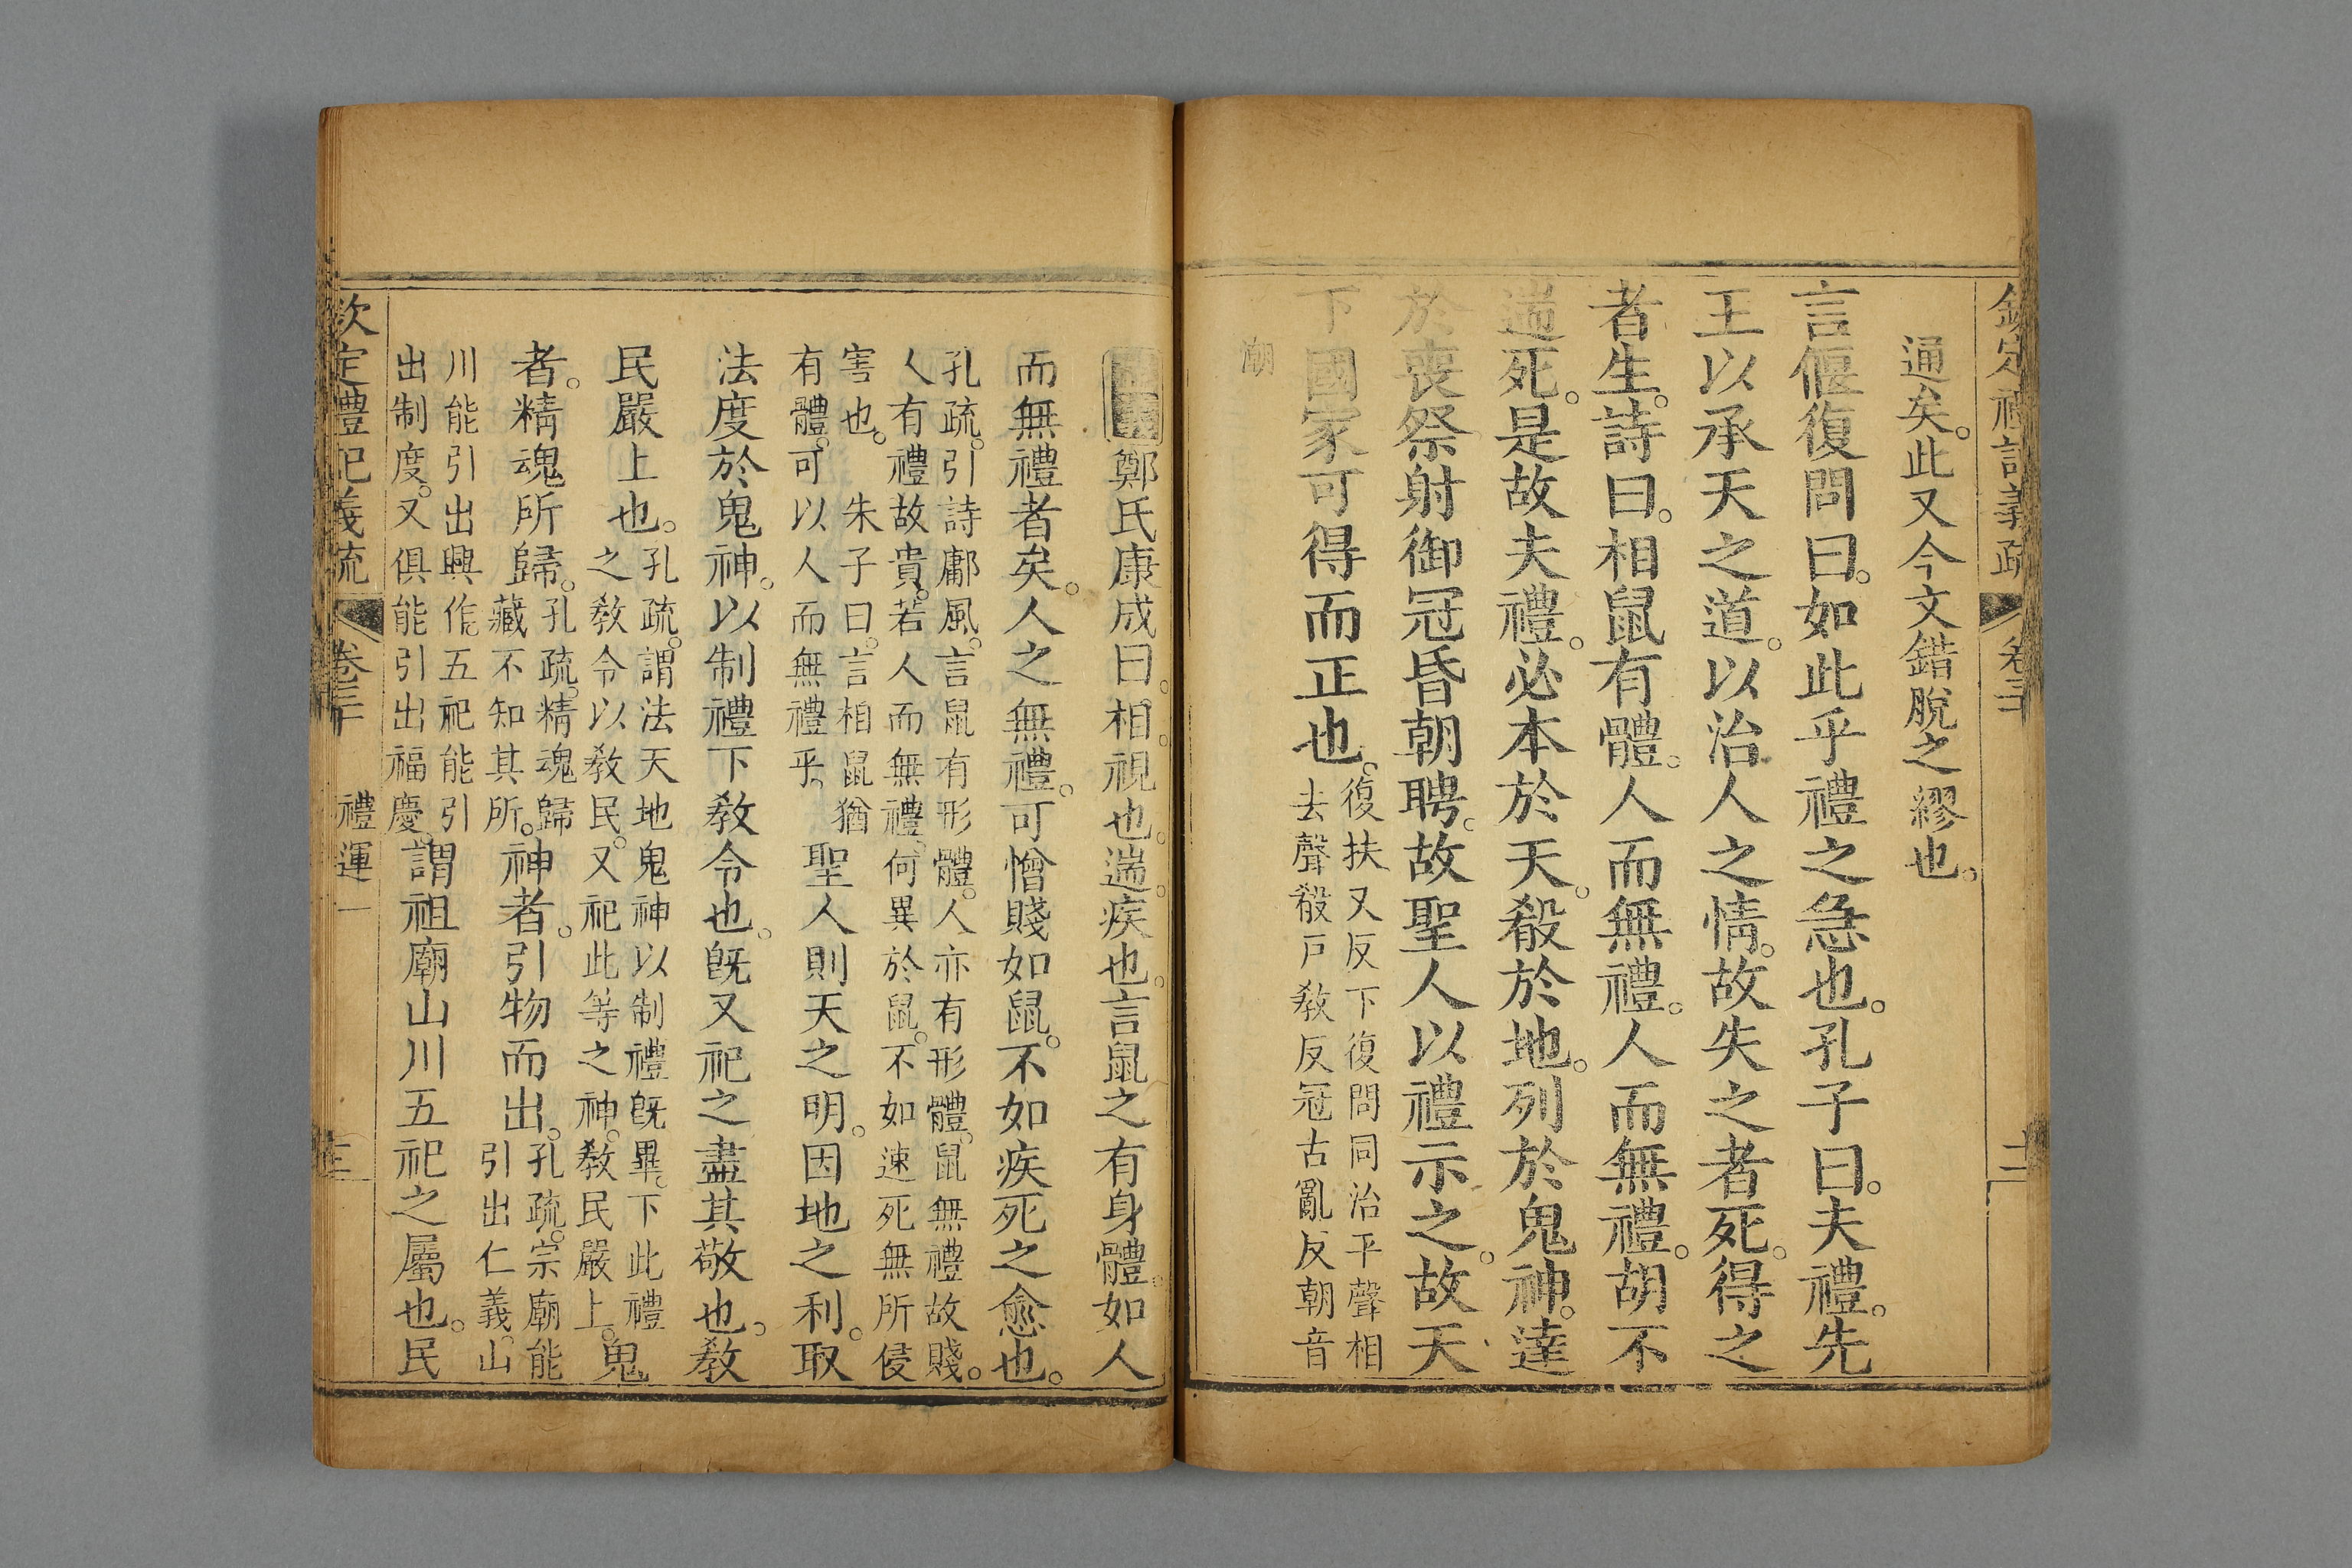 欽定禮記義疏 卷三十 十二
通矣。此又今文錯脫之繆也。
言偃復問曰。如此乎禮之急也。孔子曰。夫禮。先
王以承天之道。以治人之情。故失之者死。得之
者生。詩曰。相鼠有體。人而無禮。人而無禮。胡不
遄死。是故夫禮。必本於天。殽於地。列於鬼神。達
於喪祭射御冠昏朝聘。故聖人以禮示之。故天
下國家可得而正也。
復扶又反下復問同治平聲相
去聲殽戶教反冠古亂反朝音
潮
鄭氏康成曰。相。視也。遄。疾也。言鼠之有身體。如人
而無禮者矣。人之無禮。可憎賤如鼠。不如疾死之愈也。
孔疏。引詩鄘風。言鼠有形體。人亦有形體。鼠無禮故賤。
人有禮故貴。若人而無禮。何異於鼠。不如速死無所侵
害也。 朱子曰。言相鼠猶
有體。可以人而無禮乎。
聖人則天之明。因地之利。取
法度於鬼神。以制禮下教令也。既又祀之盡其敬也。教
民嚴上也。
孔疏。謂法天地鬼神以制禮既畢。下此禮
之教令以教民。又祀此等之神。教民嚴上。
鬼
者。精魂所歸。
孔疏。精魂歸
藏不知其所。
神者。引物而出。
孔疏。宗廟能
引出仁義。山
川能引出興作。五祀能引
出制度。又俱能引出福慶。
謂祖廟山川五祀之屬也。民
欽定禮記義疏 卷三十 禮運一 十三